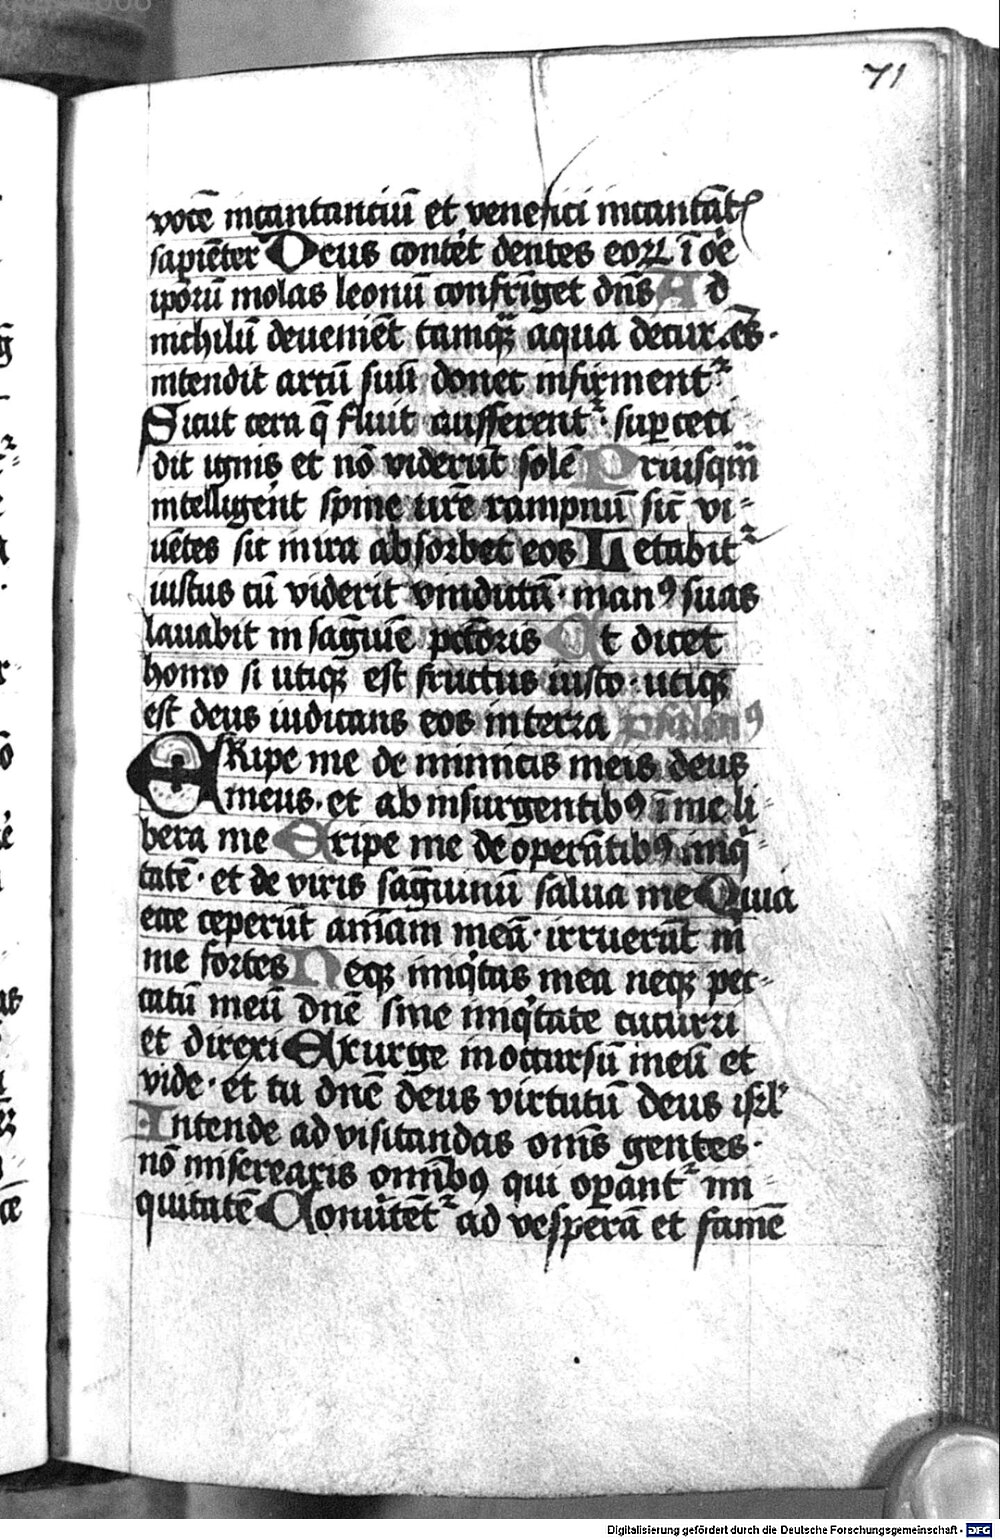 71
vocē incantanciū et venefici incantāt᷒
sapiēter Deus contet᷒ dentes eoꝝ ī oē
ip̄oꝝ molas leonū confrīget dn̄s Ad
nichilū deueniēt tamqꝫ aqua decurr̄es·
intendit arcū suū donec infirment᷑
Sicut cera q̄ fluit aufferent᷑· suꝑ ceci
dit ignis et nō viderūt solē Priusqm̄
intelligerēt spine vr̄e rampnū sic̄ vi-
uētes sic in ira absorbet eos Letabit᷑
iustus cū viderit vindictā· manꝰ suas
lauabit in sāguīe pctōris Et dicet
homo si utiqꝫ est fructus iusto· utiqꝫ
est deus iudicans eos in terra psalmꝰ
ERipe me de inimicis meis deus
meus· et ab insurgentibꝰ ī me li-
bera me Eripe me de oꝑantibꝰ iniq̄-
tatē· et de viris sāguinū salua me Quia
ecce ceperūt aīam meā· irruerūt in
me fortes Neqꝫ iniqͥtas mea neqꝫ pec-
catū meū dn̄e sine iniqͥtate cucurri
et direxi Exurge in occursū meū et
vide· et tu dn̄e deus virtutū deus isrl̄
Intende ad visitandas om̄s gentes·
nō miserearis om̄ibꝰ qui oꝑant᷑ ini-
quitatē Conuertēt᷑ ad vesperā et famē
Digitalisierung gefördert durch die Deutsche Forschungsgemeinschaft - DFG